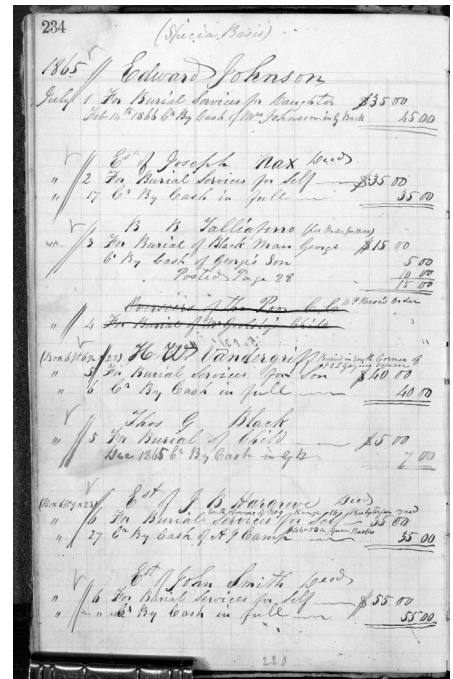 234
(Specia Basis)
1865 Edward Johnson
July 1 For Burial Services for Daughter $35 00
Feb 14th 1866 Cr By Cash of Mrs Johnson in G Back 45.00
Est of Joseph Nax Decd
" 2 For Burial Services for Self $35 00
" 17 Cr By Cash in full 35 00
Talliaferro
" 3 For Burial of Black Man George $15 00
Cr By Cash of George's Son 5 00
Posted Page 28 10 00
15 00
Overseers of the Poor
" 4 For Burial of Child
H. W. Vandergriff Buried in South Corner of
" 5 For Burial Services for Son $40 00
" 6 Cr By Cash in full 40 00
Thos G Black
" 5 For Burial of Child $5 00
Dec 1865 Cr By Cash in 7 00
Est of J B Hargrove Decd
" 6 For Burial Services for Self 35 00
" 27 Cr By Cash of A G Camp 35 00
Est of John Smith Decd
" 6 For Burial Services for Self $55 00
" " Cr By Cash in full 55 00
220